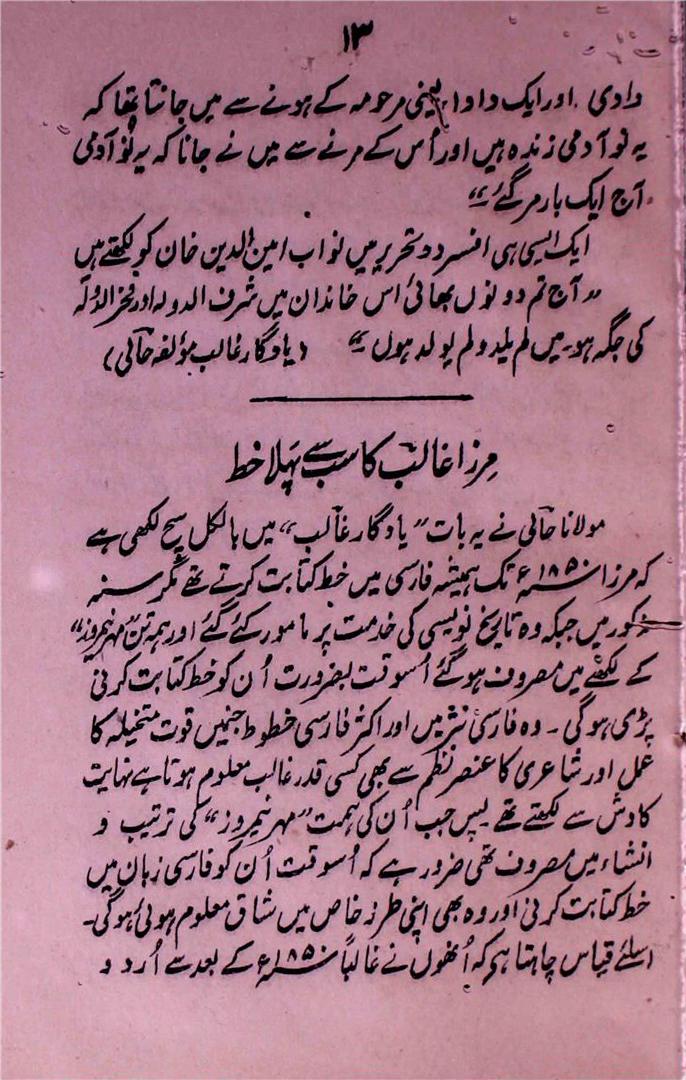 ۱۳
دادی۔ اور ایک دادا، یعنی مرحومہ کے ہونے سے میں جانتا تھا کہ
یہ نو آدمی زندہ ہیں اور اُس کے مرنے سے میں نے جانا کہ یہ نو آدمی
آج ایک بار مر گئے"
ایک ایسی ہی افسردہ تحریر میں نواب امین الدین خان کو لکھتے ہیں
"آج تم دونوں بھائی اس خاندان میں شرف الدولہ اور فخر الدولہ
کی جگہ ہو۔ میں لم یلد و لم یولد ہوں" (یادگار غالب مؤلفہ حالی)
مرزا غالب کا سب سے پہلا خط
مولانا حالی نے یہ بات "یادگار غالب" میں بالکل سچ لکھی ہے
کہ مرزا ۱۸۵۰ء تک ہمیشہ فارسی میں خط کتابت کرتے تھے مگر سنہ
مذکور میں جبکہ وہ تاریخ نویسی کی خدمت پر مامور کئے گئے اور ہمہ تن "مہر نیمروز"
کے لکھنے میں مصروف ہو گئے اُسوقت بضرورت اُن کو خط کتابت کرنی
پڑی ہوگی۔ وہ فارسی نثریں اور اکثر فارسی خطوط جنہیں قوت متخیلہ کا
عمل اور شاعری کا عنصر نظم سے بھی کسی قدر غالب معلوم ہوتا ہے نہایت
کاوش سے لکھتے تھے۔ پس جب اُن کی ہمت "مہر نیمروز" کی ترتیب و
انشاء میں مصروف تھی ضرور ہے کہ اُسوقت اُن کو فارسی زبان میں
خط کتابت کرنی اور وہ بھی اپنی طرز خاص میں شاق معلوم ہوئی ہوگی۔
اسلئے قیاس چاہتا ہے کہ اُنھوں نے غالباً ۱۸۵۰ء کے بعد سے اُردو